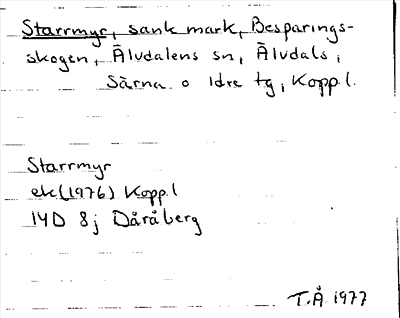 Starrmyr, sank mark, Besparings-
skogen, Älvdalens sn, Älvdals,
Särna o Idre tg, Kopp.l.
Starrmyr
ek(1976) Kopp.l
14D 8j Dåråberg
T.Å 1977